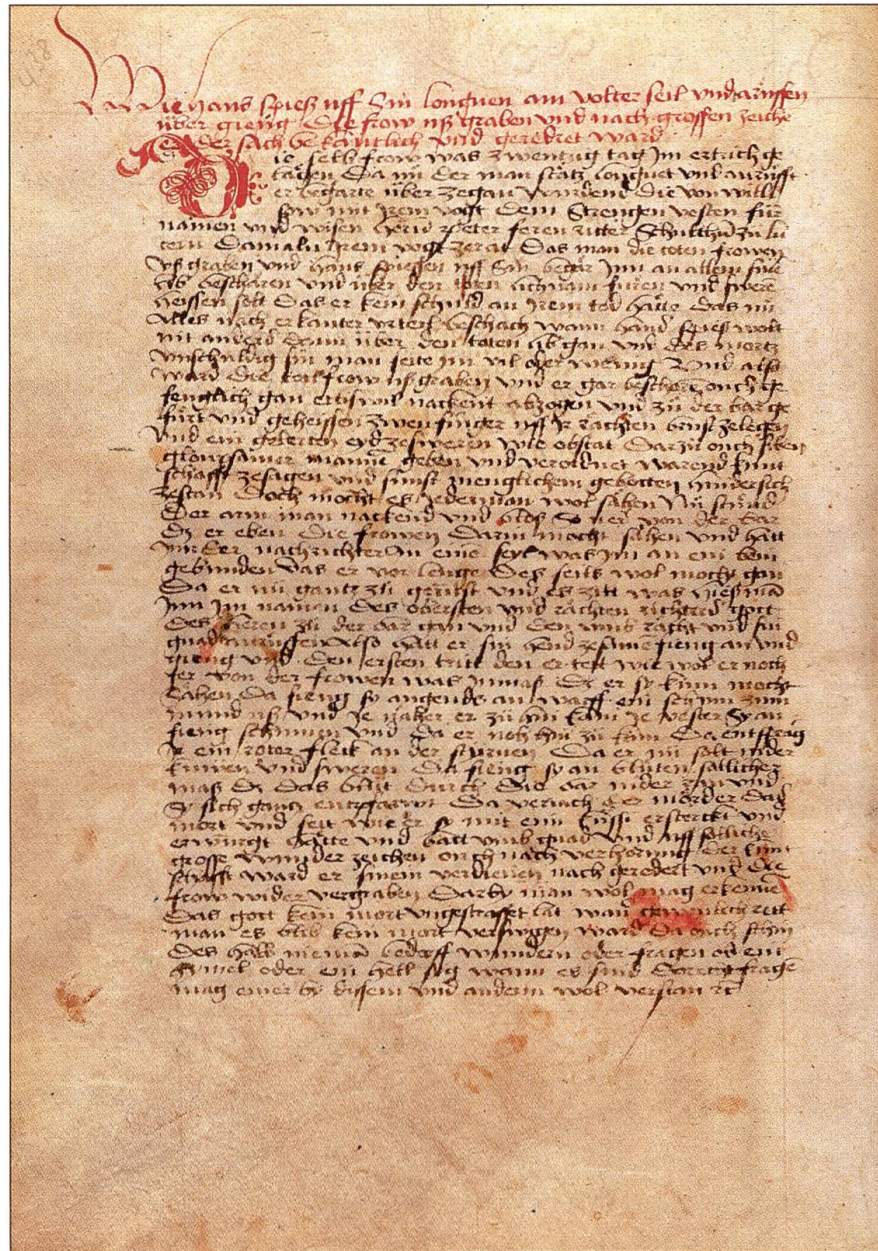 Wie hans spieß uff Sin lougnen am volter seil und daruffen
über gieng Die frow uß graben und nach grossen zeiche
der sach bekantlich und geredret ward
Die selb frow was zwentzig tag Im ertrich ge
lägen Da nu der man stätz lougnet und anrüfft
er begärte über ze gan wurdend die von willi
sow mit Irem vogt dem Strengen vesten für
namen und wisen herr peter feren ritter Schulthes zu lu
tern Damaln Irem vogt ze rat Das man die toten frowen
uß graben und hans spiessen uff Sin begär Im an allem für
us beschären und über den toten lichnam füren und sweren
heissen sött Das er kein schuld an Irem tod hätte das nu
Alles nach erkanter urteil beschach wann hans spieß wolt
nit anders dann über den toten lib gan und des mortz
unschuldig sin man seite Im vil oder wenig Und also
ward die frow uß graben und er gar beschoren ouch ge
fenglich gan ertiswil nackent abzogen und zu der bar ge
fürt und geheissen zwen finger uff Ir rächten brust ze legen
und ein gelerten eyd ze sweren wie obstat Darzu ouch siben
gloubsamer mannen geben und verordnet warend kunt
schafft ze sagen und sunst menglichem gebotten hindersich
ze stan Doch mocht es Jederman wol sähen Nu stund
Der arm man nackend und blos So ver von der bar
Dz er eben die frowen Darin mocht sähen und hatt
Inn der nachrichter An eim seyl was Im an ein bein
gebunden das er vor lenge des seils wol mocht gan
Da er nu gantz zu gerüst und es zitt was hies man
Inn Im namen des obersten und rächten richters gott
des herren zu der bar gan und den umb rächt und sin
gnad anrüffen Also hatt er sin hend ze samen fieng an und
gieng und den ersten tritt den er tett wie wol er noch
fer von der frowen was Inmas Dz er sy kum mocht
sähen Da fieng sy angends an warff ein schum zum
mund us und Je näher er zu hin kam Je vester Sy an
fieng schumen und da er noh hin zu kam Da entsprang
Ir ein roter fleck an der styrnen Da er nu solt nider
knüwen und sweren Da fieng sy an blüten sölicher
mas Dz das blut durch die bar nider ran und
Sy sich gantz entpfarwt Da veriach der mörder das
mort und seit wie er sy mit eim küssi ersteckt und
erwürgt hätte und batt umb gnad und uff söliche
grosse wunder zeichen ouch nach verhörung der kunt
schafft ward er sinem verdienen nach geredert und die
frow wider vergraben Darby man wol mag erkennen
Das gott kein mort ungestraffet lat wan gewonlich rett
man es blib kein mort verswigen
Des halb nieman bedarff wundern oder fragen ob ein
hymel oder ein hell sig wann es sind
mag einer by disem und anderm wol verstan rc